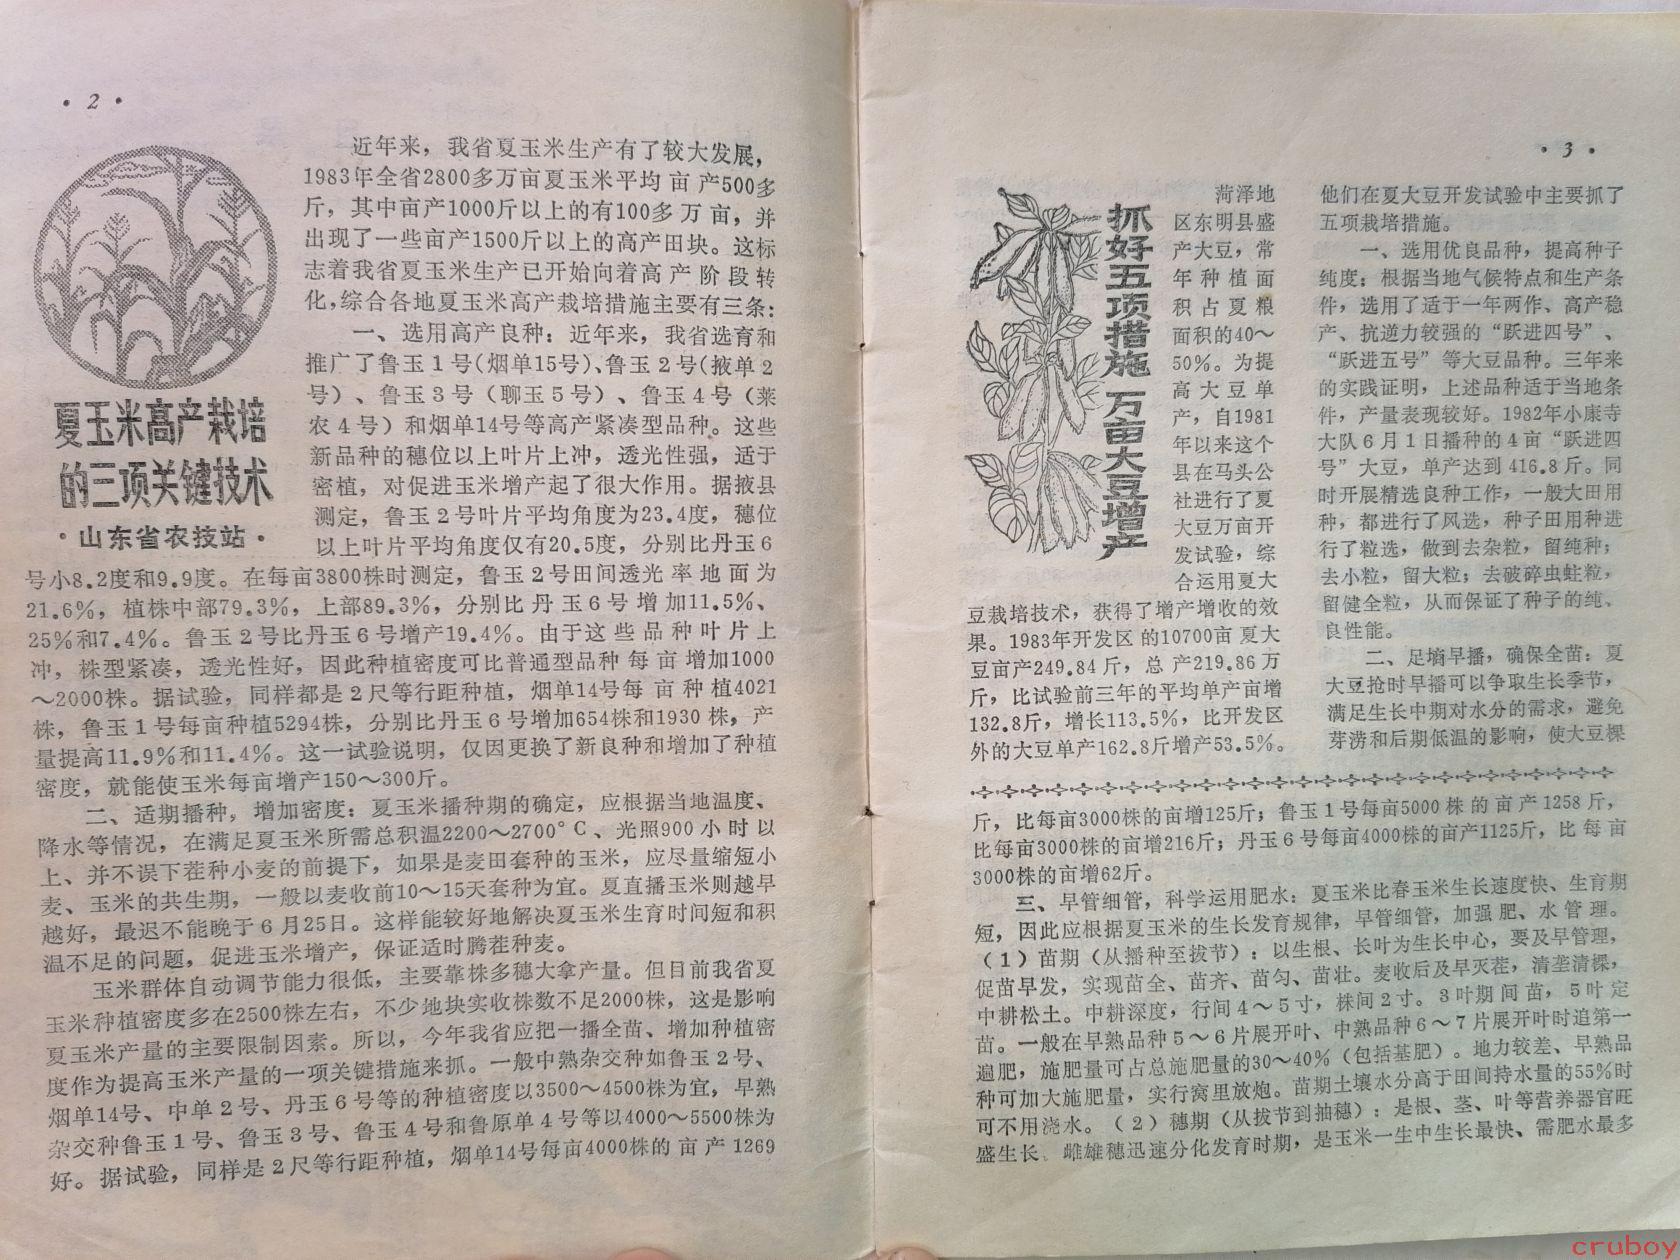 · 2 ·
夏玉米高产栽培
的三项关键技术
·山东省农技站·
近年来，我省夏玉米生产有了较大发展，
1983年全省2800多万亩夏玉米平均亩产500多
斤，其中亩产1000斤以上的有100多万亩，并
出现了一些亩产1500斤以上的高产田块。这标
志着我省夏玉米生产已开始向着高产阶段转
化，综合各地夏玉米高产栽培措施主要有三条：
一、选用高产良种：近年来，我省选育和
推广了鲁玉1号(烟单15号)、鲁玉2号(掖单2
号）、鲁玉3号（聊玉5号）、鲁玉4号（莱
农4号）和烟单14号等高产紧凑型品种。这些
新品种的穗位以上叶片上冲，透光性强，适于
密植，对促进玉米增产起了很大作用。据掖县
测定，鲁玉2号叶片平均角度为23.4度，穗位
以上叶片平均角度仅有20.5度，分别比丹玉6
号小8.2度和9.9度。在每亩3800株时测定，鲁玉2号田间透光率地面为
21.6%，植株中部79.3%，上部89.3%，分别比丹玉6号增加11.5%、
25%和7.4%。鲁玉2号比丹玉6号增产19.4%。由于这些品种叶片上
冲，株型紧凑，透光性好，因此种植密度可比普通型品种每亩增加1000
～2000株。据试验，同样都是2尺等行距种植，烟单14号每亩种植4021
株，鲁玉1号每亩种植5294株，分别比丹玉6号增加654株和1930株，产
量提高11.9%和11.4%。这一试验说明，仅因更换了新良种和增加了种植
密度，就能使玉米每亩增产150～300斤。
二、适期播种，增加密度：夏玉米播种期的确定，应根据当地温度、
降水等情况，在满足夏玉米所需总积温2200～2700°C、光照900小时以
上、并不误下茬种小麦的前提下，如果是麦田套种的玉米，应尽量缩短小
麦、玉米的共生期，一般以麦收前10～15天套种为宜。夏直播玉米则越早
越好，最迟不能晚于6月25日。这样能较好地解决夏玉米生育时间短和积
温不足的问题，促进玉米增产，保证适时腾茬种麦。
玉米群体自动调节能力很低，主要靠株多穗大拿产量。但目前我省夏
玉米种植密度多在2500株左右，不少地块实收株数不足2000株，这是影响
夏玉米产量的主要限制因素。所以，今年我省应把一播全苗、增加种植密
度作为提高玉米产量的一项关键措施来抓。一般中熟杂交种如鲁玉2号、
烟单14号、中单2号、丹玉6号等的种植密度以3500～4500株为宜，早熟
杂交种鲁玉1号、鲁玉3号、鲁玉4号和鲁原单4号等以4000～5500株为
好。据试验，同样是2尺等行距种植，烟单14号每亩4000株的亩产1269
· 3 ·
抓好五项措施 万亩大豆增产
菏泽地
区东明县盛
产大豆，常
年种植面
积占夏粮
面积的40～
50%。为提
高大豆单
产，自1981
年以来这个
县在马头公
社进行了夏
大豆万亩开
发试验，综
合运用夏大
豆栽培技术，获得了增产增收的效
果。1983年开发区的10700亩夏大
豆亩产249.84斤，总产219.86万
斤，比试验前三年的平均单产亩增
132.8斤，增长113.5%，比开发区
外的大豆单产162.8斤增产53.5%。
他们在夏大豆开发试验中主要抓了
五项栽培措施。
一、选用优良品种，提高种子
纯度：根据当地气候特点和生产条
件，选用了适于一年两作、高产稳
产、抗逆力较强的“跃进四号”、
“跃进五号”等大豆品种。三年来
的实践证明，上述品种适于当地条
件，产量表现较好。1982年小康寺
大队6月1日播种的4亩“跃进四
号”大豆，单产达到416.8斤。同
时开展精选良种工作，一般大田用
种，都进行了风选，种子田用种进
行了粒选，做到去杂粒，留纯种；
去小粒，留大粒；去破碎虫蛀粒，
留健全粒，从而保证了种子的纯、
良性能。
二、足墒早播，确保全苗：夏
大豆抢时早播可以争取生长季节，
满足生长中期对水分的需求，避免
芽涝和后期低温的影响，使大豆棵
斤，比每亩3000株的亩增125斤；鲁玉1号每亩5000株的亩产1258斤，
比每亩3000株的亩增216斤；丹玉6号每亩4000株的亩产1125斤，比每亩
3000株的亩增62斤。
三、早管细管，科学运用肥水：夏玉米比春玉米生长速度快、生育期
短，因此应根据夏玉米的生长发育规律，早管细管，加强肥、水管理。
（1）苗期（从播种至拔节）：以生根、长叶为生长中心，要及早管理，
促苗早发，实现苗全、苗齐、苗匀、苗壮。麦收后及早灭茬，清垄清棵，
中耕松土。中耕深度，行间4～5寸，株间2寸。3叶期间苗，5叶定
苗。一般在早熟品种5～6片展开叶、中熟品种6～7片展开叶时追第一
遍肥，施肥量可占总施肥量的30～40%（包括基肥）。地力较差、早熟品
种可加大施肥量，实行窝里放炮。苗期土壤水分高于田间持水量的55%时
可不用浇水。（2）穗期（从拔节到抽穗）：是根、茎、叶等营养器官旺
盛生长、雌雄穗迅速分化发育时期，是玉米一生中生长最快、需肥水最多
cruboy